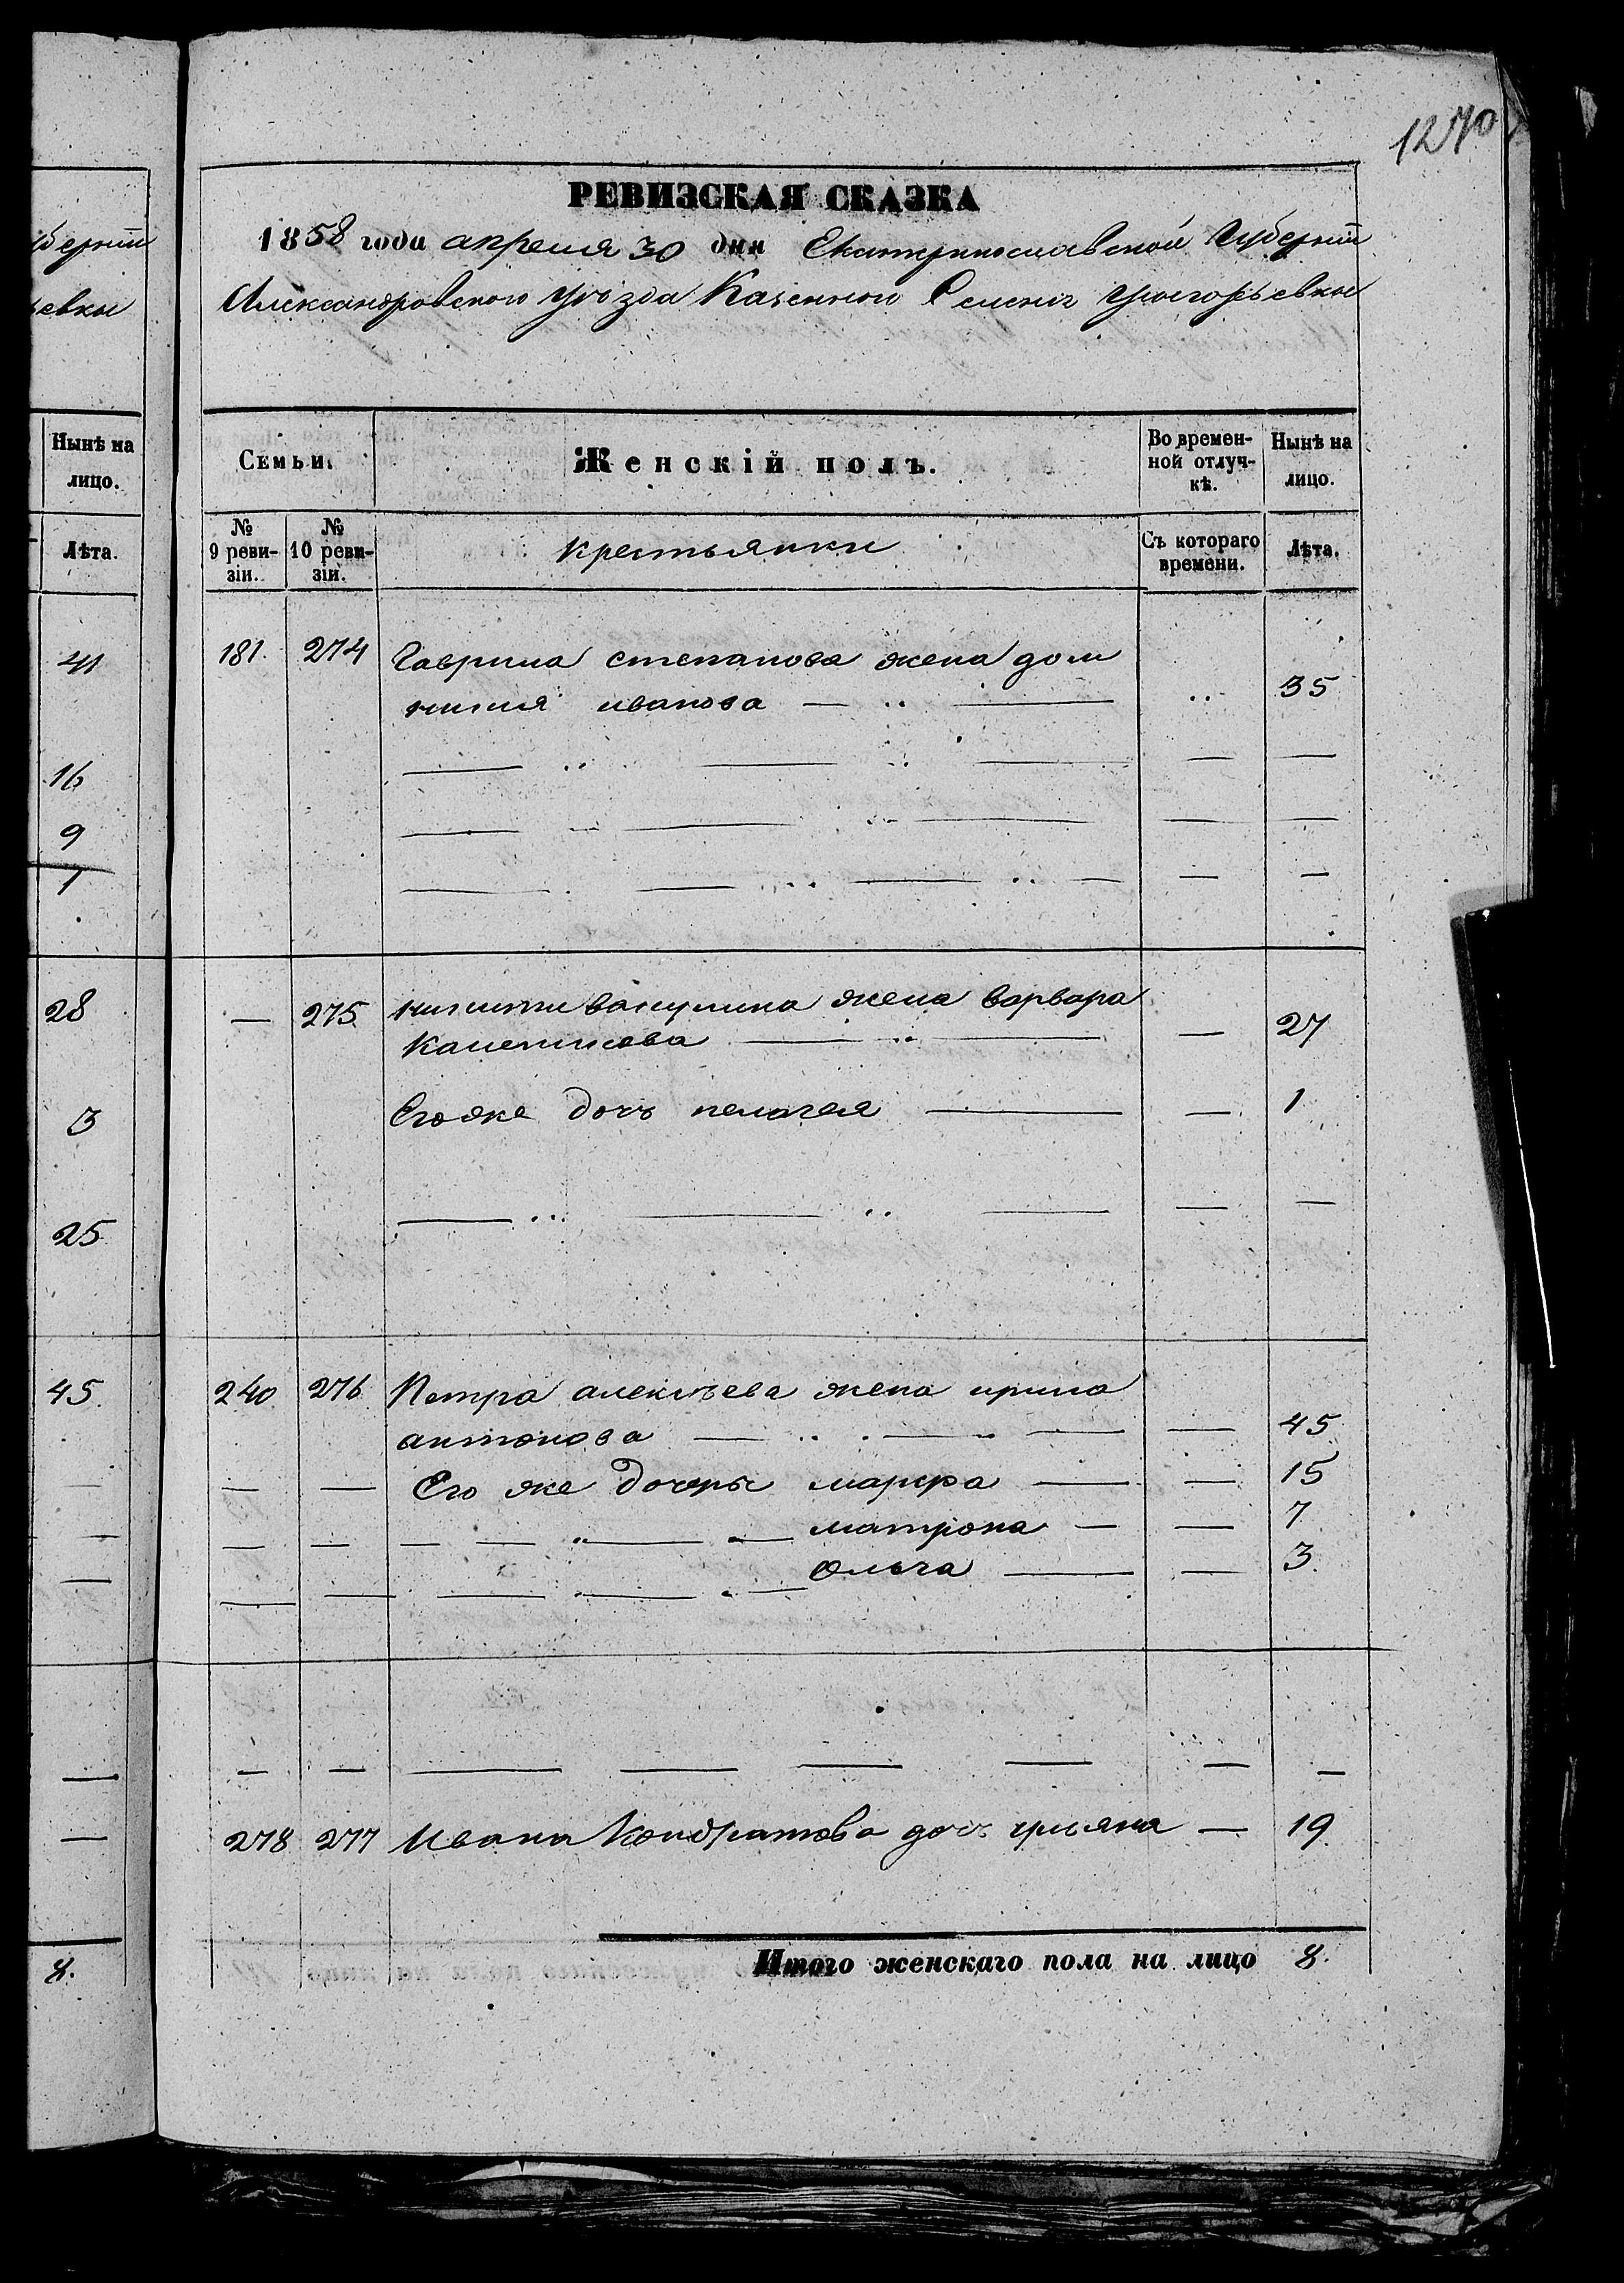 1270
берніи
евки
Нынѣ на
лицо.
Лѣта.
41
16
9
1
28
3
25
45.
8.
РЕВИЗСКАЯ СКАЗКА
1858 года апреля 30 дня Екатеринославской Губерніи
Александровского уѣзда Казенного Селенія
Семьи.
Женскій полъ.
Во времен-
ной отлуч-
кѣ.
Нынѣ на
лицо.
№
9 реви-
зіи.
№
10 реви-
зіи.
крестьянки
Съ котораго
времени.
Лѣта.
181. 274 Гаврила степанова жена дом
никия иванова — 35
— 275 никиты вакулина жена варвара
— 27
Егоже дочь пелагея — — 1
240. 276 Петра алексѣева жена ирина
антонова — — 45
— — Его же дочеры марфа — — 15
— — матрона — — 7
— — ольга — — 3.
278 277 Ивана Кондратова дочь ульяна — 19.
Итого женскаго пола на лицо 8.